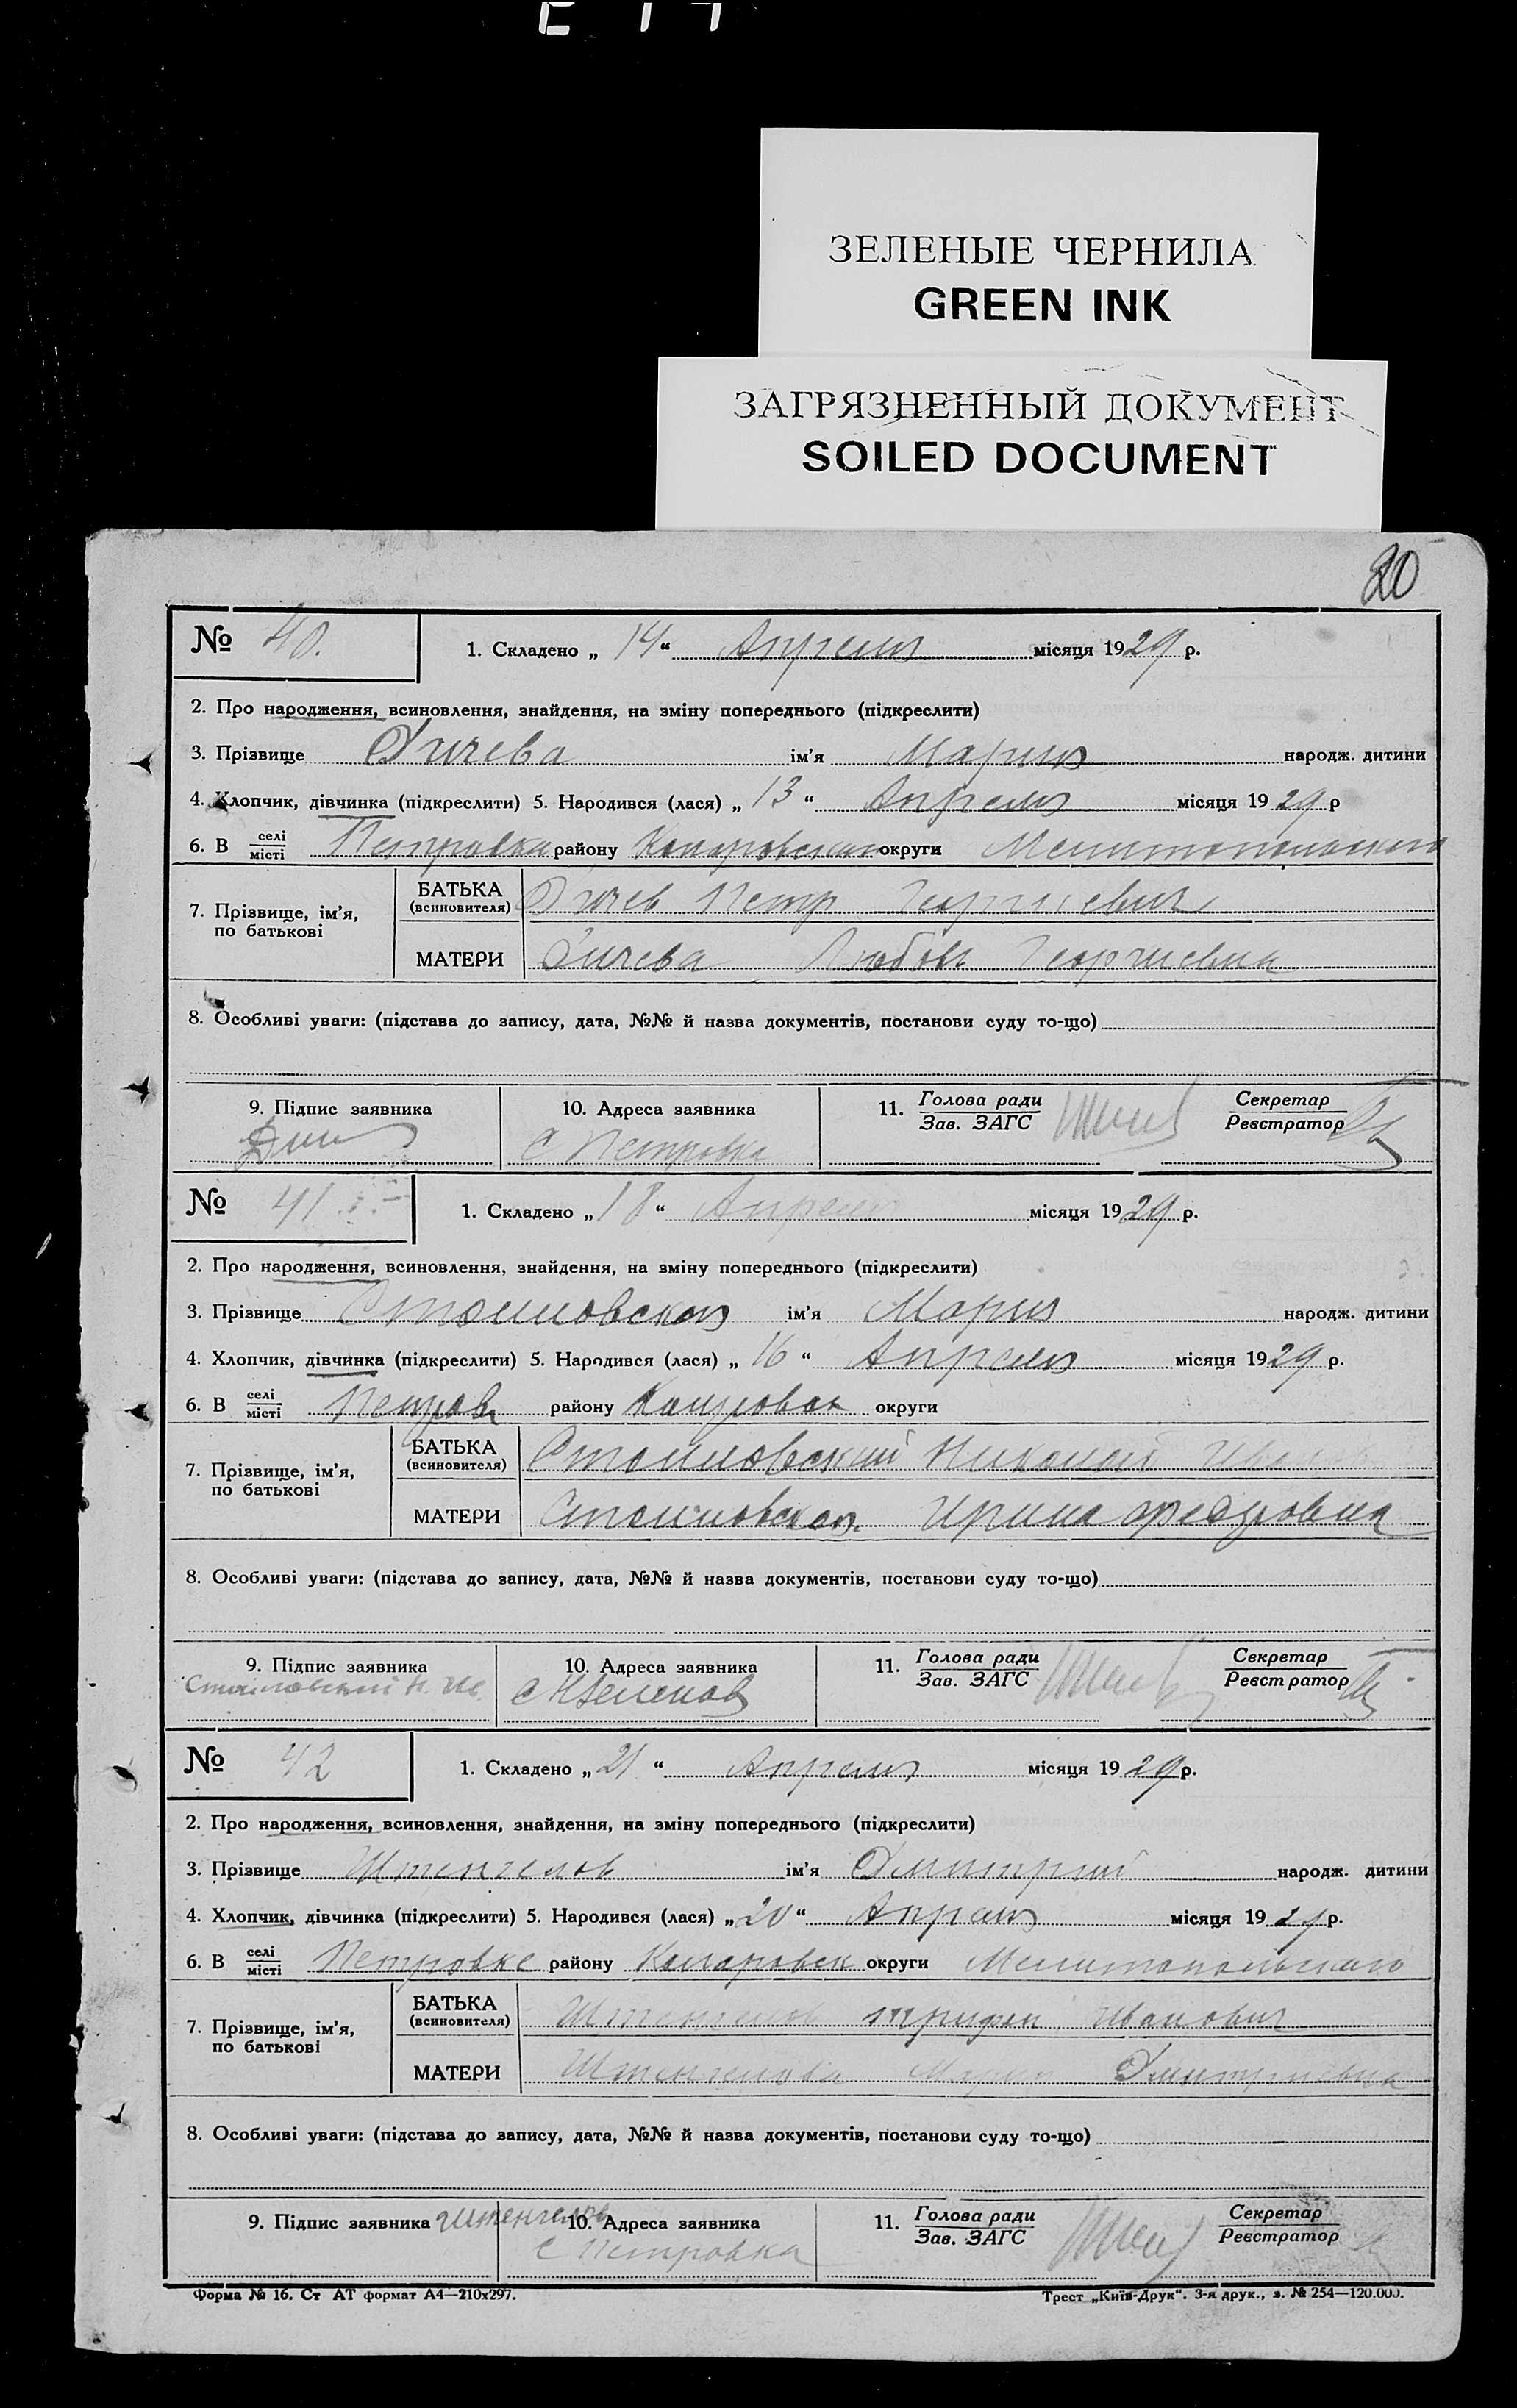 ЗЕЛЕНЫЕ ЧЕРНИЛА
GREEN INK
ЗАГРЯЗНЕННЫЙ ДОКУМЕНТ
SOILED DOCUMENT
20
№ 40. 1. Складено „ 14 “ Апреля місяця 1929 р.
2. Про народження, всиновлення, знайдення, на зміну попереднього (підкреслити)
3. Прізвище Дичева ім’я Мария народж. дитини
4. Хлопчик, дівчинка (підкреслити) 5. Народився (лася) „ 13 “ Апреля місяця 1929 р
6. В селі місті Петровка району округи Мелитопольского
7. Прізвище, ім’я, по батькові
БАТЬКА (всиновителя) Дичев Петр Георгиевич
МАТЕРИ Дичева Любовь Георгиевна
8. Особливі уваги: (підстава до запису, дата, №№ й назва документів, постанови суду то-що)
9. Підпис заявника 10. Адреса заявника 11. Голова ради Зав. ЗАГС Секретар Реєстратор
С Петровка
№ 41 1. Складено „ 18 “ Апреля місяця 1929 р.
2. Про народження, всиновлення, знайдення, на зміну попереднього (підкреслити)
3. Прізвище Стоиловская ім’я Мария народж. дитини
4. Хлопчик, дівчинка (підкреслити) 5. Народився (лася) „ 16 “ Апреля місяця 1929 р.
6. В селі місті району округи
7. Прізвище, ім’я, по батькові
БАТЬКА (всиновителя) Стоиловский Николай
МАТЕРИ Стоиловская Ирина Федровна
8. Особливі уваги: (підстава до запису, дата, №№ й назва документів, постанови суду то-що)
9. Підпис заявника 10. Адреса заявника 11. Голова ради Зав. ЗАГС Секретар Реєстратор
Стоиловский Н. Ив.
№ 42 1. Складено „ 21 “ Апреля місяця 1929 р.
2. Про народження, всиновлення, знайдення, на зміну попереднього (підкреслити)
3. Прізвище Штенгелов ім’я Дмитрий народж. дитини
4. Хлопчик, дівчинка (підкреслити) 5. Народився (лася) „ 20 “ Апреля місяця 1929 р.
6. В селі місті Петровке району округи Мелитопольского
7. Прізвище, ім’я, по батькові
БАТЬКА (всиновителя) Штенгелов Трифон Иванович
МАТЕРИ Штенгелова Мария Дмитриевна
8. Особливі уваги: (підстава до запису, дата, №№ й назва документів, постанови суду то-що)
9. Підпис заявника Штенгелов 10. Адреса заявника 11. Голова ради Зав. ЗАГС Секретар Реєстратор
С Петровка
Форма № 16. Ст АТ формат А4—210х297. Трест „Київ-Друк“. 3-я друк., з. № 254—120.000.